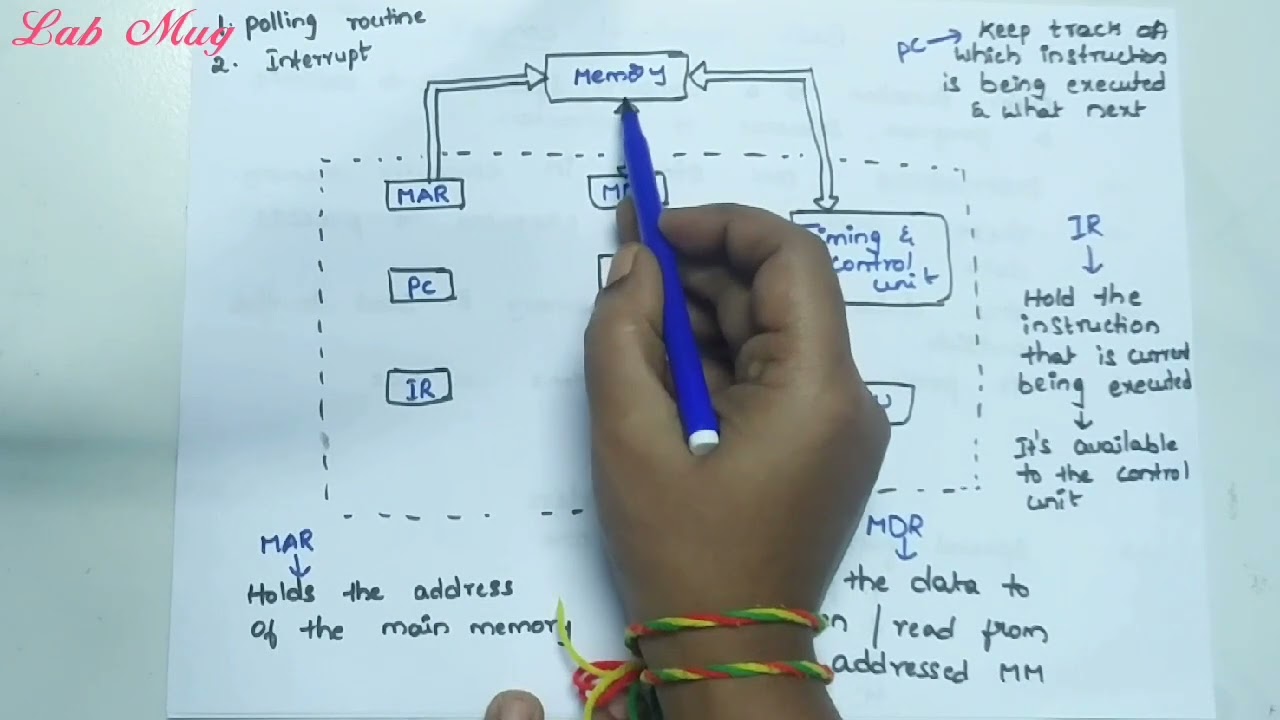 Lab Mug
1. polling routine
2. Interrupt
PC → Keep track of
which instruction
is being executed
& what next
Memory
MAR
PC
IR
Timing &
control
unit
IR
Hold the
instruction
that is current
being executed
It's available
to the control
unit
MAR
Holds the address
of the main memory
MDR
the data to
/ read from
addressed MM